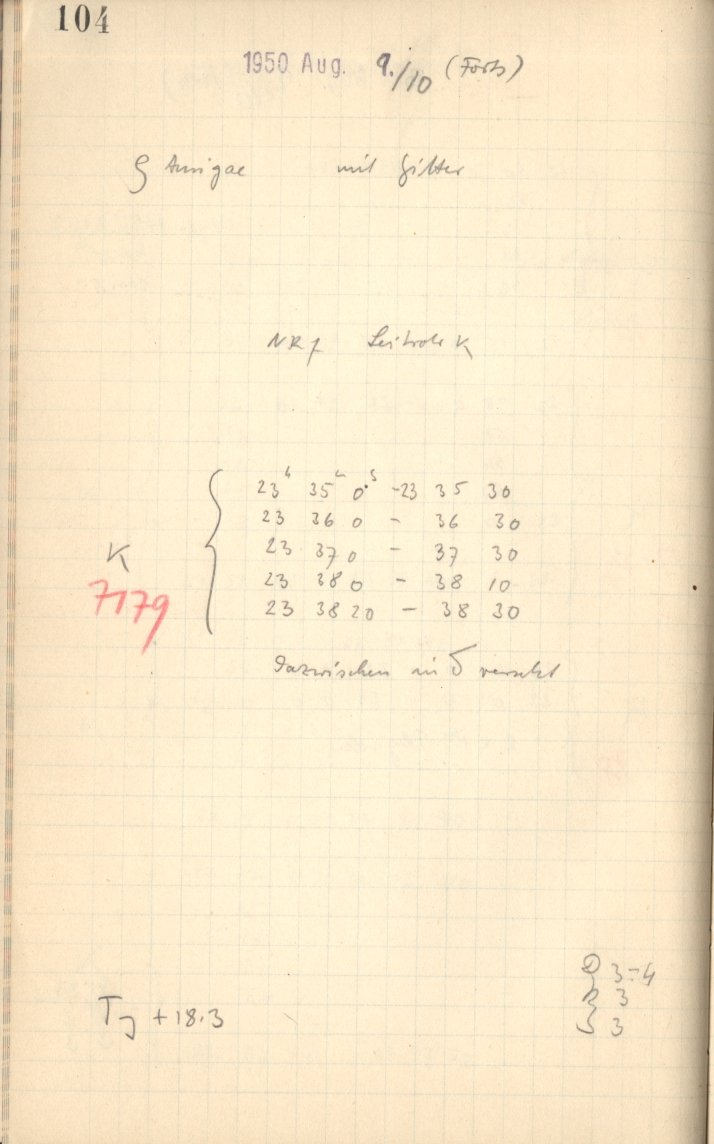 104
1950 Aug. 9./10 (Forts)
ζ Aurigae mit Gitter
NRf Leitrohr K
23ʰ 35ᵐ 0ˢ - 23 35 30
23 36 0 - 36 30
23 37 0 - 37 30
K
23 38 0 - 38 10
7179
23 38 20 - 38 30
Dazwischen in δ versetzt
D 3-4
R 3
Tj +18.3
S 3